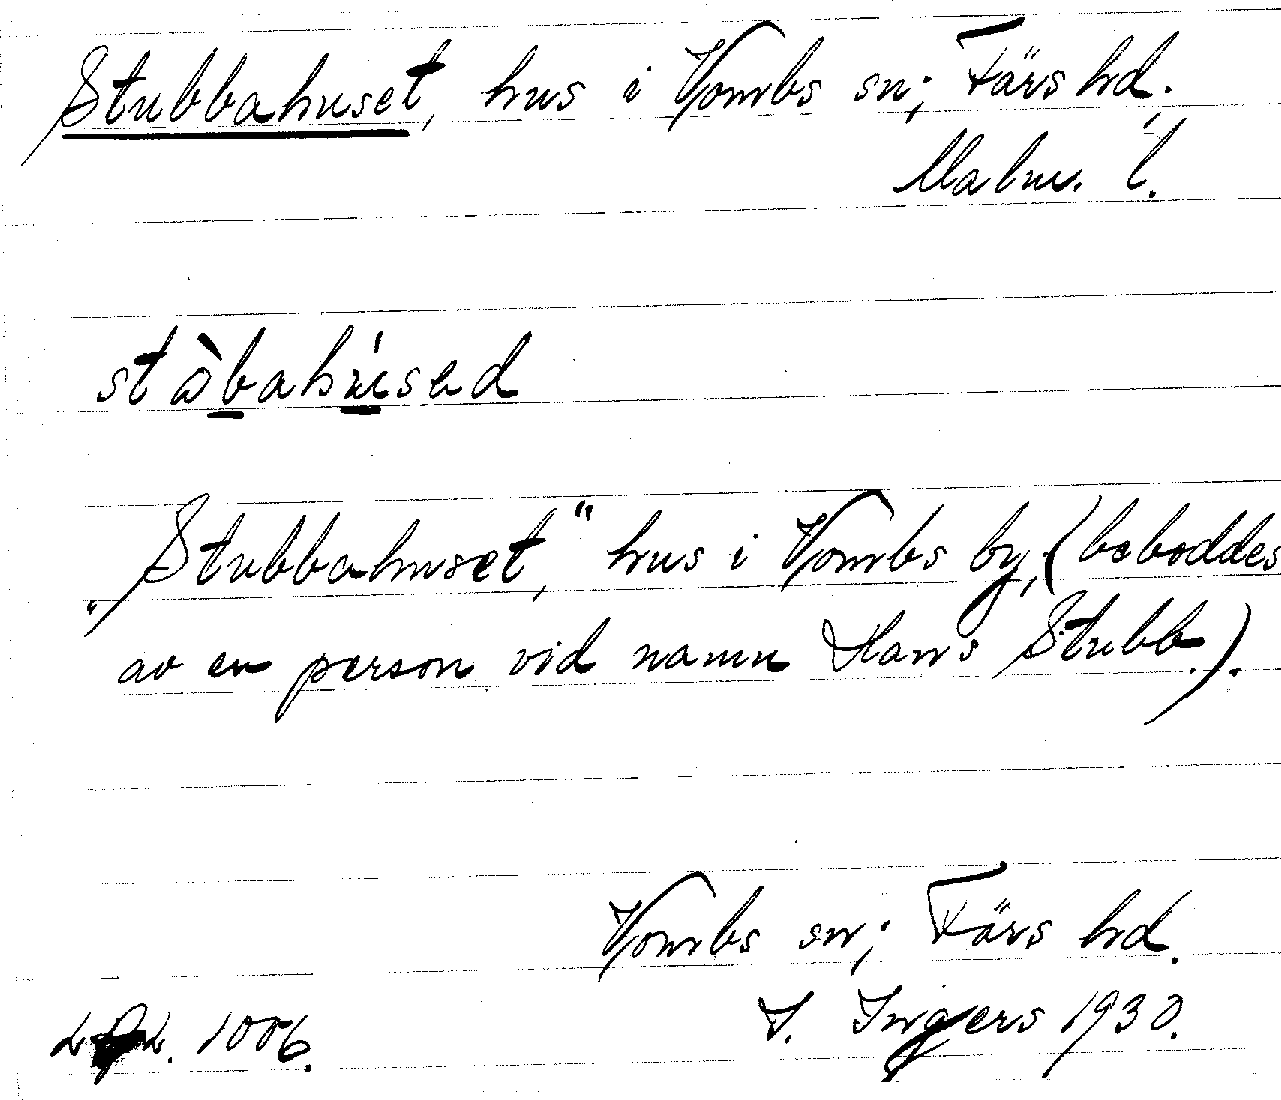 Stubbahuset, hus i Vombs sn; Färs hd.
Malm. l.
stàbahúsed
"Stubbahuset," hus i Vombs by, (beboddes
av en person vid namn Hans Stubb.).
Vombs sn; Färs hd.
I. Ingers 1930.
1006.